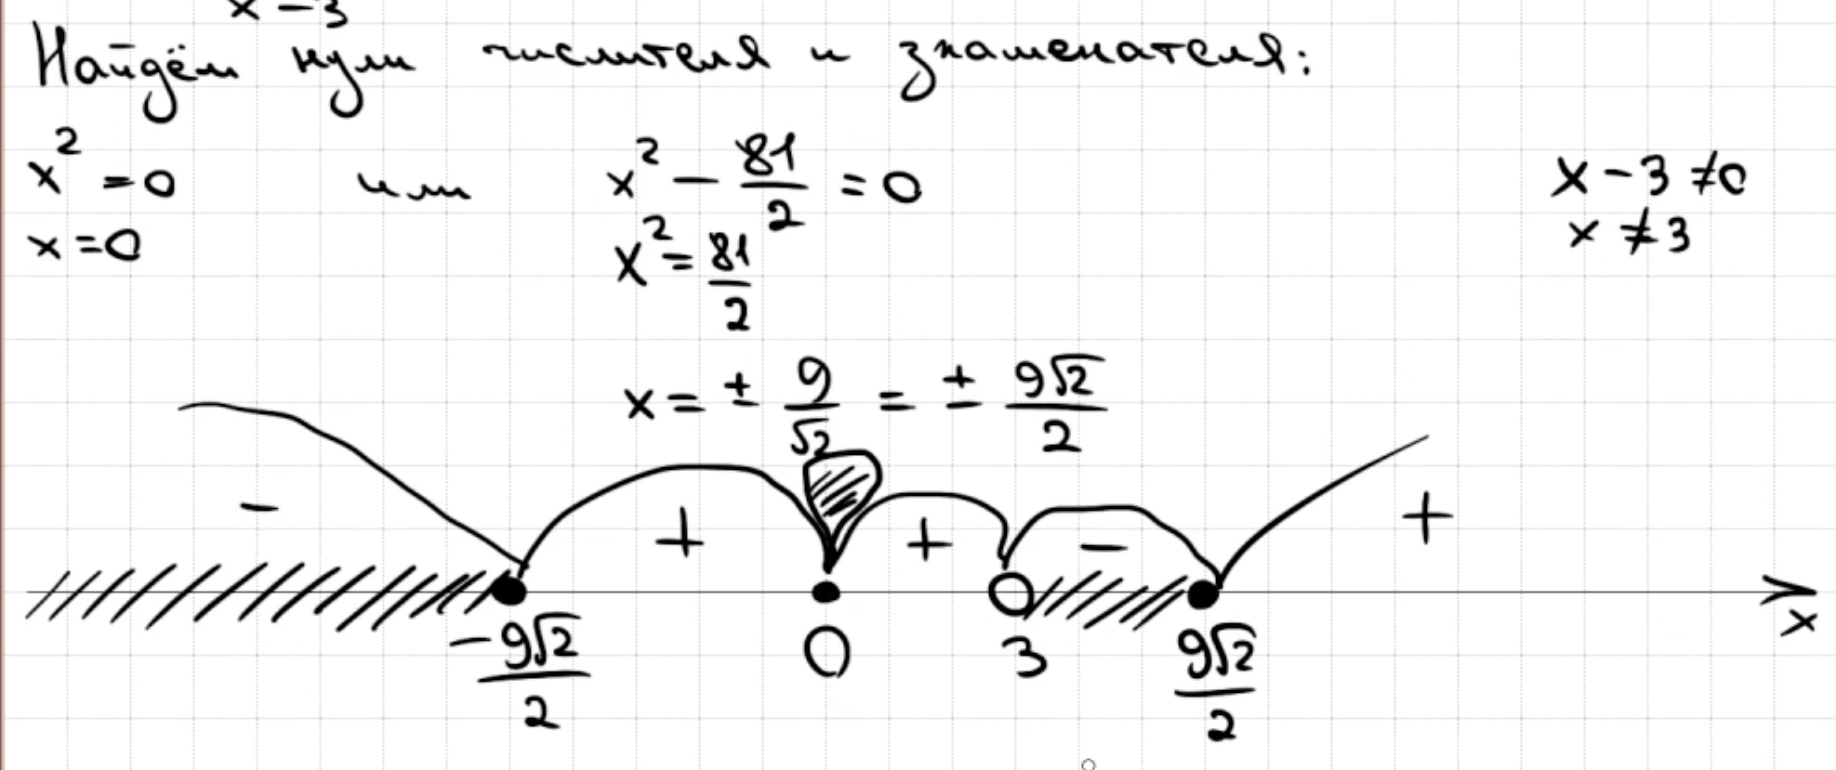 x - 3
Найдём нули числителя и знаменателя:
x² = 0 или x² - 81/2 = 0 x - 3 ≠ 0
x = 0 x² = 81/2 x ≠ 3
x = ± 9/√2 = ± 9√2/2
- + + - +
-9√2/2 0 3 9√2/2 x